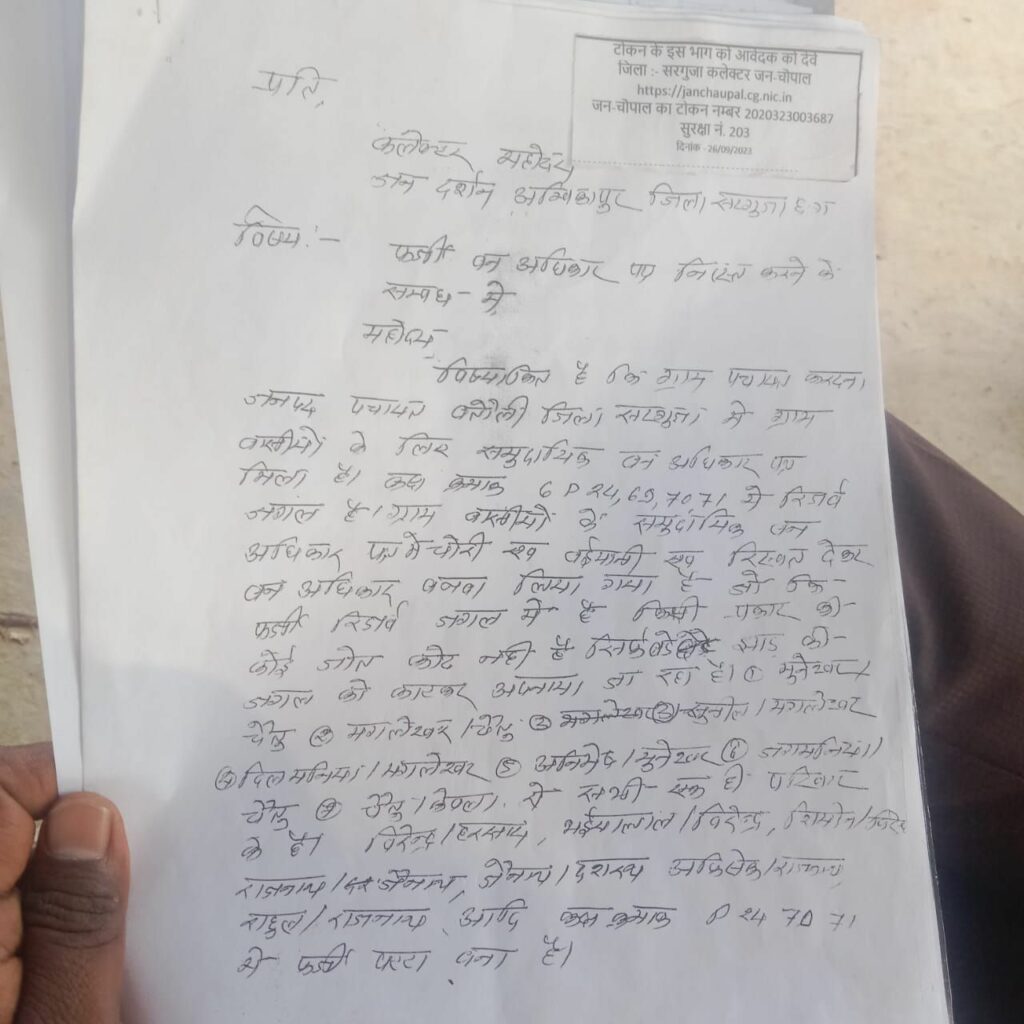 टोकन के इस भाग को आवेदक को देवे
जिला :- सरगुजा कलेक्टर जन-चोपाल
https://janchaupal.cg.nic.in
जन-चोपाल का टोकन नम्बर 2020323003687
सुरक्षा नं. 203
दिनांक - 26/09/2023
प्रति,
कलेक्टर महोदय,
जन दर्शन अम्बिकापुर जिला सरगुजा छ ग
विषय:- फर्जी वन अधिकार पत्र निरस्त करने के
सम्बध - मे
महोदय,
विषयांकित है कि ग्राम पंचायत करदना
जनपद पंचायत बतौली जिला सरगुजा मे ग्राम
वासीयों के लिए समुदायिक वन अधिकार पत्र
मिला है। कक्ष क्रमाक 6 P 24, 69, 70 71 मे रिजर्व
जगल है। ग्राम वासीयों के समुदायिक वन
अधिकार पत्र मे चोरी एव बईमानी एव रिस्वत देकर
वन अधिकार बनवा लिया गया है जो कि
फर्जी रिजर्व जगल मे है किसी प्रकार की
कोई जोत कोट नही है सिर्फ बडे झाड की
जगल को काटकर अपनाया जा रहा है। ① मुनेश्वर/
चैतु ② मगलेश्वर/चैतु ③ सुनील/मगलेश्वर
④ दिलमनिया/मगलेश्वर ⑤ अनिमेष/मुनेश्वर ⑥ जगमनिया/
चैतु ⑦ चैतु/केवला. ये सभी एक ही परिवार
के है। विरेन्द्र/हरसाय, भईयालाल/विरेन्द्र, शिमोन/
राजनाथ/जैनाथ, जैनाथ/दशरथ अभिषेक/राजनाथ,
राहुल/राजनाथ आदि कक्ष क्रमाक P 24 70 71
मे फर्जी पट्टा बना है।